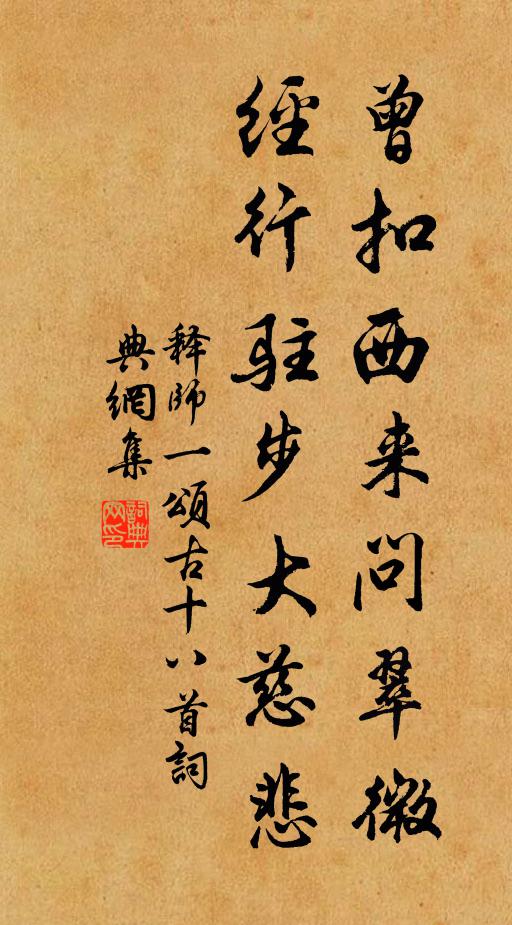 曾扣西来问翠微
经行驻步大慈悲
释师一頌古十八首詞
典網集
詞典网印